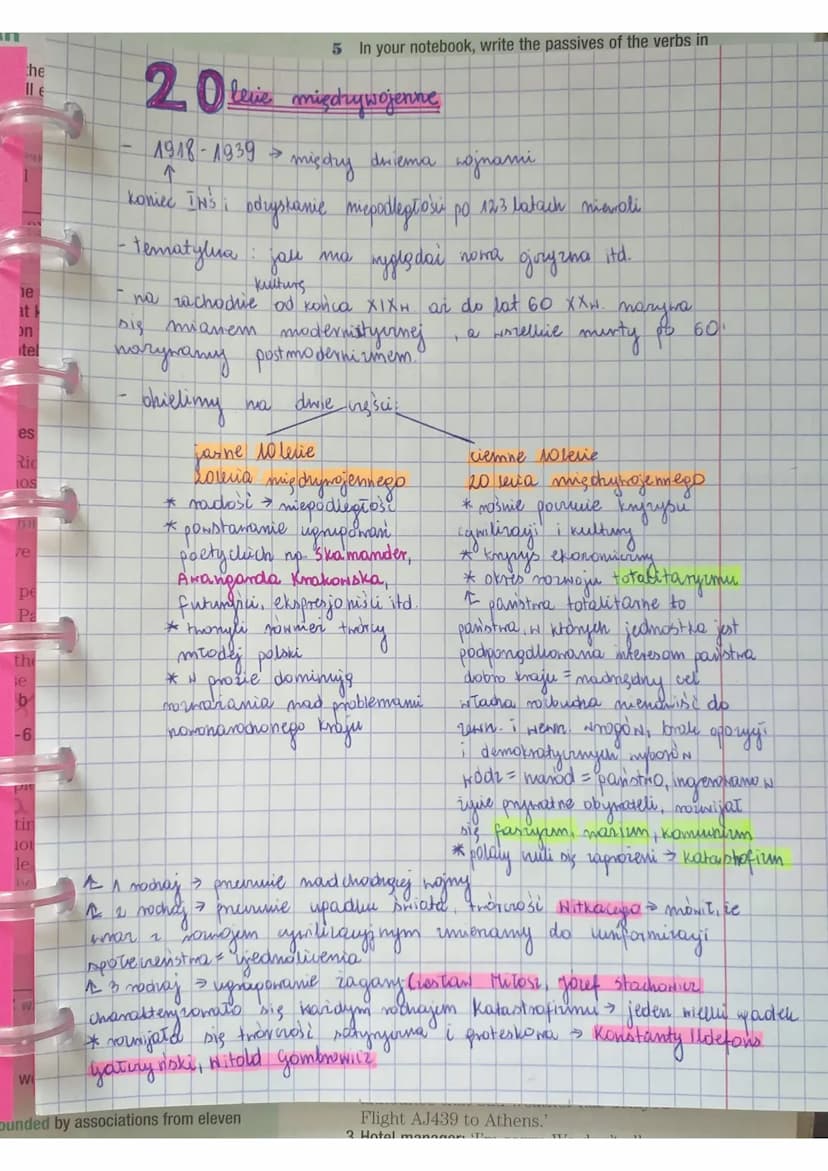 5 In your notebook, write the passives of the verbs in
20lecie międzywojenne
- 1918-1939 → między dwiema wojnami
↑
koniec IWŚ i odzyskanie niepodległości po 123 latach niewoli
- tematyka: jak ma wyglądać nowa ojczyzna itd.
kulturę
- na zachodzie od końca XIXw. aż do lat 60 XXw. nazywa
się mianem modernistycznej, a wszelkie nurty po 60.
nazywamy postmodernizmem.
- dzielimy na dwie części:
jasne 10lecie
20lecia międzywojennego
* radość → niepodległość
* powstawanie ugrupowań
poetyckich np. Skamander,
Awangarda Krakowska,
futuryści, ekspresjoniści itd.
* tworzyli również twórcy
młodej polski
* w prozie dominują
rozważania nad problemami
nowonarodzonego kraju
ciemne 10lecie
20lecia międzywojennego
* rośnie poczucie kryzysu
cywilizacji i kultury
* kryzys ekonomiczny
* okres rozwoju totalitaryzmu
↑ państwa totalitarne to
państwa, w których jednostka jest
podporządkowana interesom państwa
dobro kraju = nadrzędny cel
władza rozbudza nienawiść do
zewn. i wewn. wrogów, brak opozycji
i demokratycznych wyborów
wódz = naród = państwo, ingerowano w
życie prywatne obywateli, rozwijał
się faszyzm, nazizm, komunizm
* polacy czuli się zagrożeni → katastrofizm
↑ 1 rodzaj → przeczucie nadchodzącej wojny
↑ 2 rodzaj → przeczucie upadku świata, twórczość Witkacego → mówił, że
wraz z rozwojem cywilizacyjnym zmierzamy do uniformizacji
społeczeństwa = ujednolicenia
↑ 3 rodzaj → ugrupowanie żagary Czesław Miłosz, Józef Stachowicz
charakteryzowało się każdym rodzajem katastrofizmu → jeden wielki upadek
* rozwijała się twórczość satyryczna i groteskowa → Konstanty Ildefons
Gałczyński, Witold Gombrowicz
ounded by associations from eleven
Flight AJ439 to Athens.'